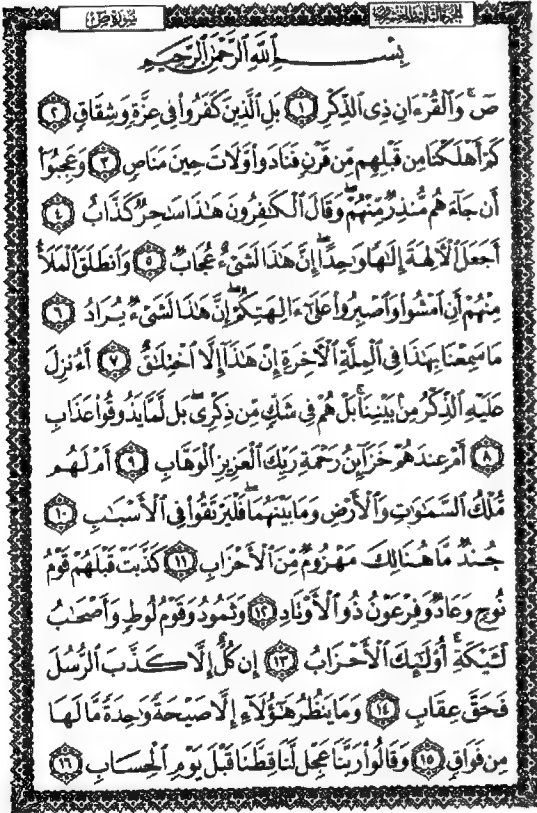 سورة ص الجزء الثالث والعشرون
بسم الله الرحمن الرحيم
صٓ ۚ وَٱلْقُرْءَانِ ذِى ٱلذِّكْرِ ١ بَلِ ٱلَّذِينَ كَفَرُوا۟ فِى عِزَّةٍ وَشِقَاقٍ ٢
كَمْ أَهْلَكْنَا مِن قَبْلِهِم مِّن قَرْنٍ فَنَادَوا۟ وَّلَاتَ حِينَ مَنَاصٍ ٣ وَعَجِبُوٓا۟
أَن جَآءَهُم مُّنذِرٌ مِّنْهُمْ ۖ وَقَالَ ٱلْكَٰفِرُونَ هَٰذَا سَٰحِرٌ كَذَّابٌ ٤
أَجَعَلَ ٱلْءَالِهَةَ إِلَٰهًا وَٰحِدًا ۖ إِنَّ هَٰذَا لَشَىْءٌ عُجَابٌ ٥ وَٱنطَلَقَ ٱلْمَلَأُ
مِنْهُمْ أَنِ ٱمْشُوا۟ وَٱصْبِرُوا۟ عَلَىٰٓ ءَالِهَتِكُمْ ۖ إِنَّ هَٰذَا لَشَىْءٌ يُرَادُ ٦
مَا سَمِعْنَا بِهَٰذَا فِى ٱلْمِلَّةِ ٱلْءَاخِرَةِ إِنْ هَٰذَآ إِلَّا ٱخْتِلَٰقٌ ٧ أَءُنزِلَ
عَلَيْهِ ٱلذِّكْرُ مِنۢ بَيْنِنَا ۚ بَلْ هُمْ فِى شَكٍّ مِّن ذِكْرِى ۖ بَل لَّمَّا يَذُوقُوا۟ عَذَابِ
٨ أَمْ عِندَهُمْ خَزَآئِنُ رَحْمَةِ رَبِّكَ ٱلْعَزِيزِ ٱلْوَهَّابِ ٩ أَمْ لَهُم
مُّلْكُ ٱلسَّمَٰوَٰتِ وَٱلْأَرْضِ وَمَا بَيْنَهُمَا ۖ فَلْيَرْتَقُوا۟ فِى ٱلْأَسْبَٰبِ ١٠
جُندٌ مَّا هُنَالِكَ مَهْزُومٌ مِّنَ ٱلْأَحْزَابِ ١١ كَذَّبَتْ قَبْلَهُمْ قَوْمُ
نُوحٍ وَعَادٌ وَفِرْعَوْنُ ذُو ٱلْأَوْتَادِ ١٢ وَثَمُودُ وَقَوْمُ لُوطٍ وَأَصْحَٰبُ
لْـَٔيْكَةِ ۚ أُو۟لَٰٓئِكَ ٱلْأَحْزَابُ ١٣ إِن كُلٌّ إِلَّا كَذَّبَ ٱلرُّسُلَ
فَحَقَّ عِقَابِ ١٤ وَمَا يَنظُرُ هَٰٓؤُلَآءِ إِلَّا صَيْحَةً وَٰحِدَةً مَّا لَهَا
مِن فَوَاقٍ ١٥ وَقَالُوا۟ رَبَّنَا عَجِّل لَّنَا قِطَّنَا قَبْلَ يَوْمِ ٱلْحِسَابِ ١٦